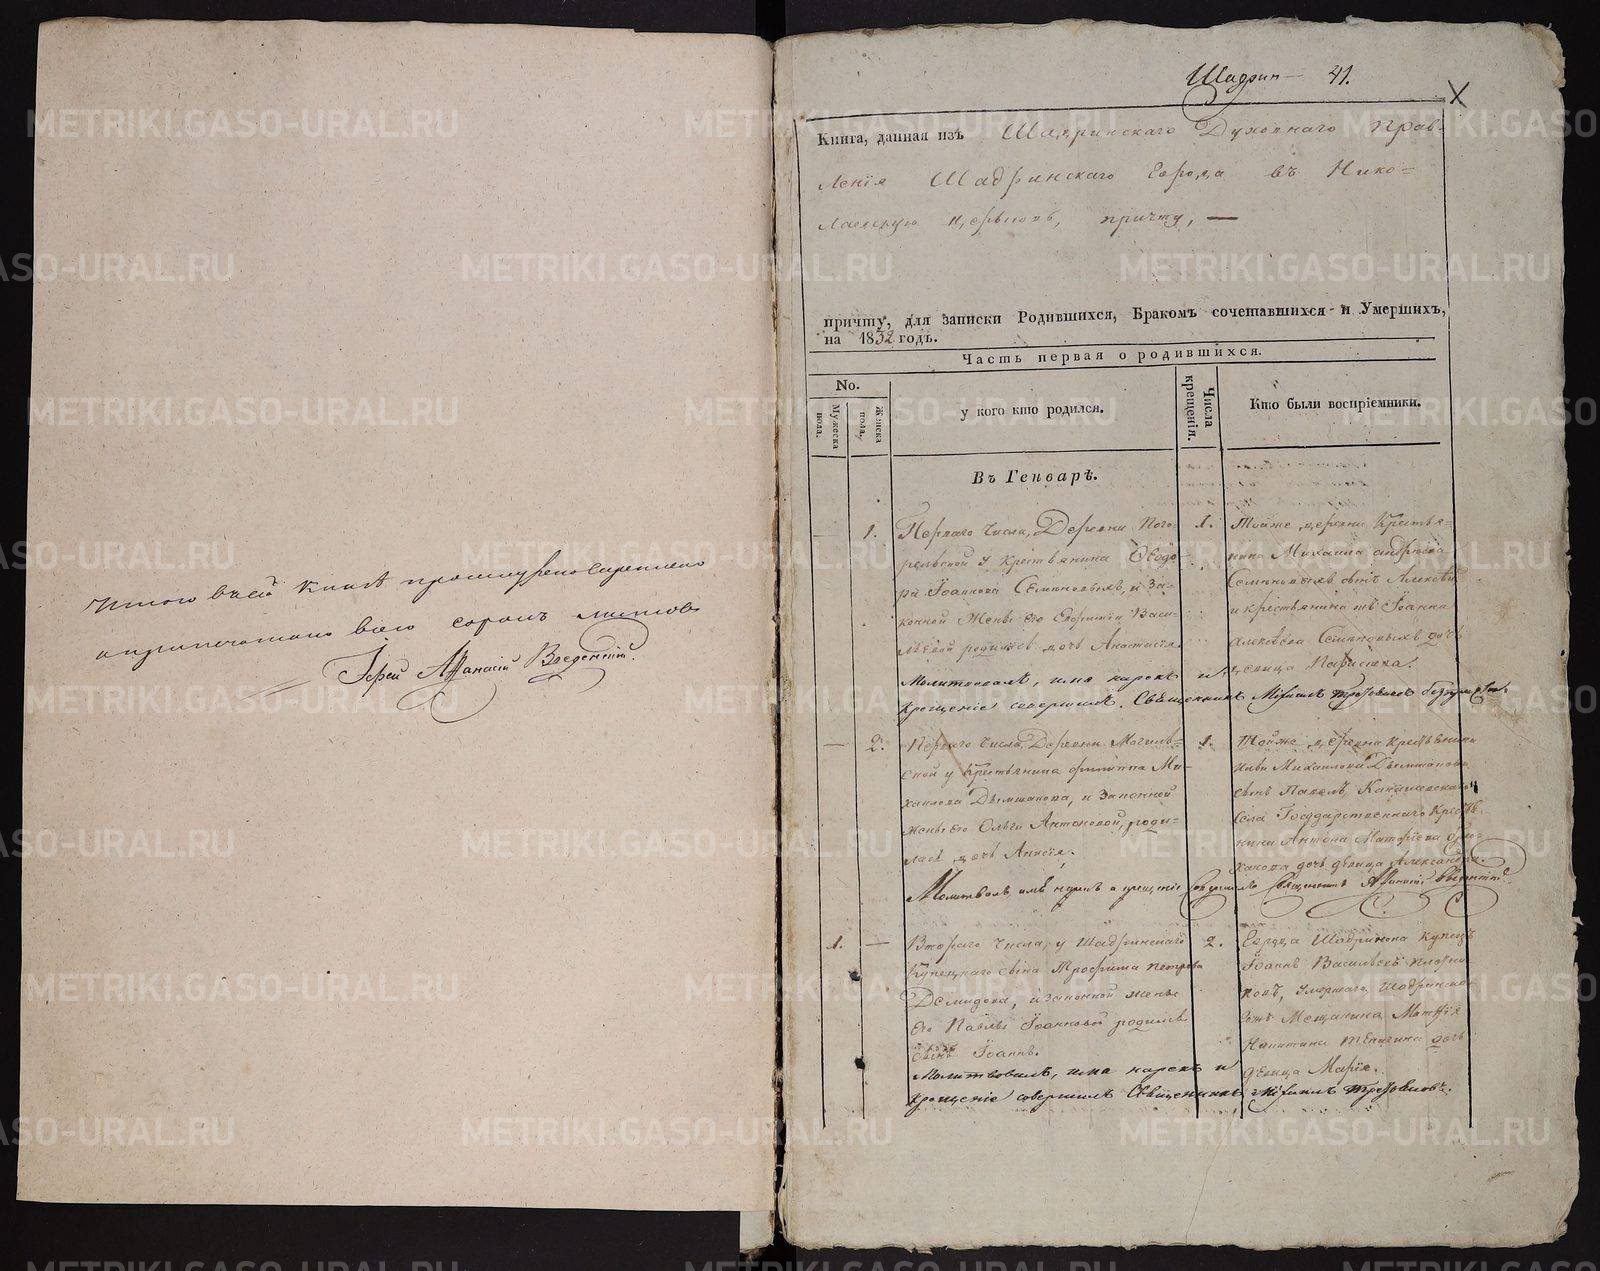 Итого в сей книге прошнуровано скреплено
и пропечатано всего сорокъ листовъ
Іерей Аѳанасій Введенскій.
Шадрин— 41.
Книга, данная изъ Шадринскаго Духовнаго Прав-
ленія Шадринскаго Города въ Нико=
лаевскую церковь, причту, —
причту, для записки Родившихся, Бракомъ сочетавшихся и Умершихъ,
на 1832 годъ.
Часть первая о родившихся.
No.
Мужеска пола.
Женска пола.
у кого кто родился.
Числа крещенія.
Кто были воспріемники.
Въ Генварѣ.
— 1. Перваго числа, Деревни Пого-
рельской у крестьянина Ѳеодо-
ра Іоаннова Семеновыхъ, и за-
конной жены его Евфиміи Васи-
льевой родилась дочь Анастасія.
Молитвовалъ, имя нарекъ и
крещеніе совершилъ Священникъ Михаилъ
1. Тойже деревни крестья=
нина Михаила Андреева
Семеновыхъ сынъ Алексѣй
и крестьянина Іоанна
Алексѣева Семеновыхъ дочь
девица
— 2. Перваго числа, Деревни Могиль-
ской у крестьянина Филиппа Ми-
хаилова Дымшакова, и законной
жены его Ольги Антоновой, роди-
лась дочь Анисія.
Молитвовалъ имя нарекъ и крещеніе совершилъ Священникъ Аѳанасій Введенскій
1. Тойже деревни крестьянина
Михаилова Дымшакова
сынъ Павелъ,
села Государственнаго крестья
нина Антона Матфіева
дочь девица Александра.
1. — Втораго числа, у Шадринскаго
Купецкаго сына Трофима Петрова
Демидова, и законной жены
его Павлы Іоанновой родился
сынъ Іоаннъ.
Молитвовалъ, имя нарекъ и
крещеніе совершилъ Священникъ Михаилъ
2. Города Шадринска купецъ
Іоаннъ Васильевъ Плотни
ковъ, умершаго Шадринска
го Мещанина Матѳія
Никитина дочь
девица Марія.
METRIKI.GASO-URAL.RU